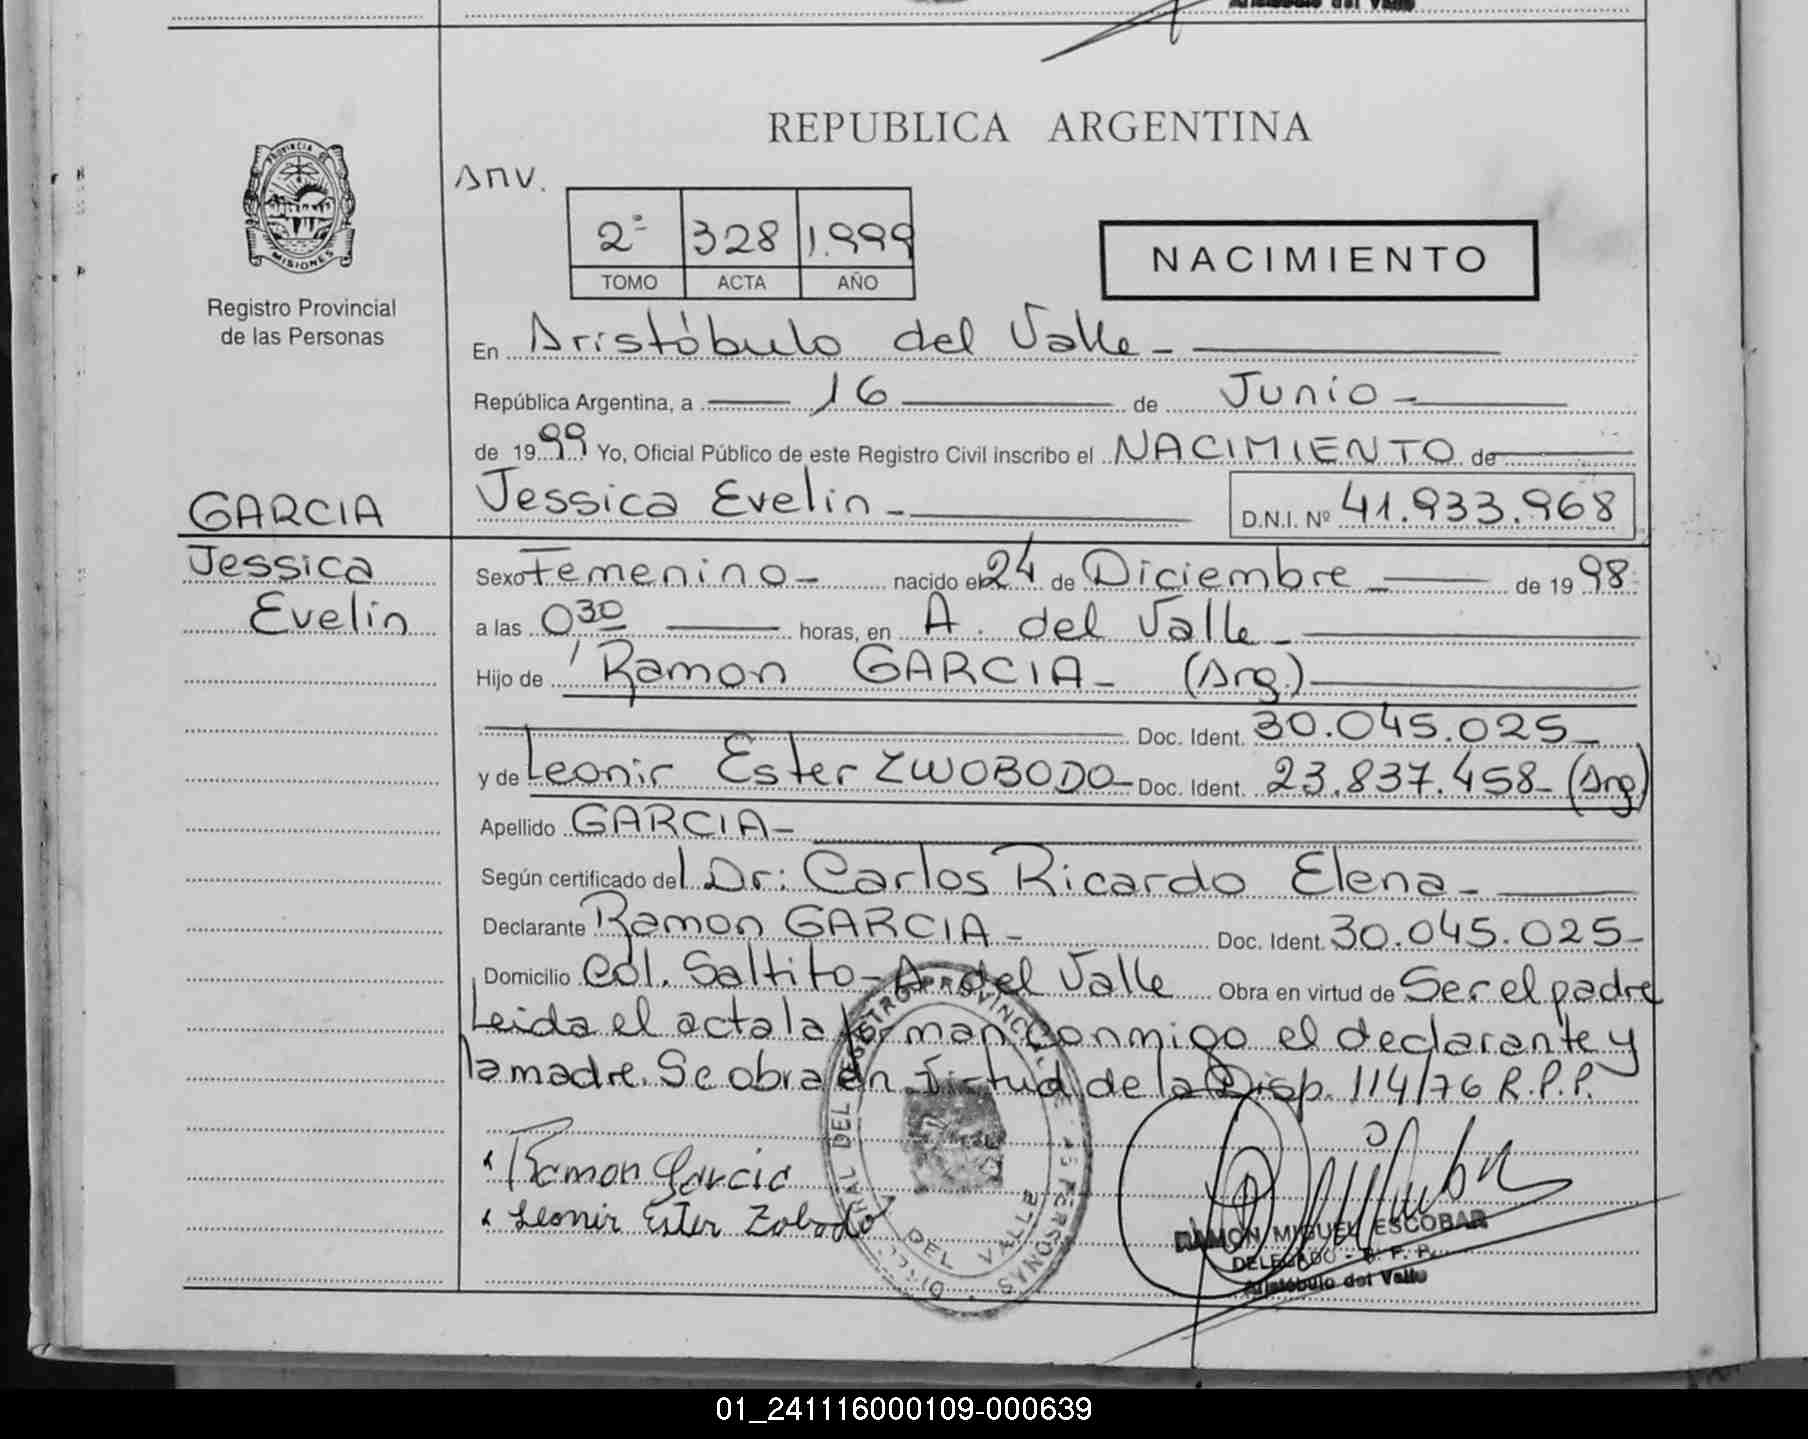 Aristóbulo del Valle
REPUBLICA ARGENTINA
PROVINCIA DE
MISIONES
Registro Provincial
de las Personas
ANV.
2º 328 1.999
TOMO ACTA AÑO
NACIMIENTO
En Aristóbulo del Valle -
República Argentina, a 16 de Junio -
de 1999 Yo, Oficial Público de este Registro Civil inscribo el NACIMIENTO de
GARCIA
Jessica Evelin -
D.N.I. Nº 41.933.968
Jessica
Evelin
Sexo Femenino - nacido el 24 de Diciembre - de 1998
a las 0,30 horas, en A. del Valle -
Hijo de Ramon GARCIA - (Arg.)
Doc. Ident. 30.045.025 -
y de Leonir Ester ZWOBODO - Doc. Ident. 23.837.458 - (Arg)
Apellido GARCIA -
Según certificado del Dr: Carlos Ricardo Elena -
Declarante Ramon GARCIA - Doc. Ident. 30.045.025 -
Domicilio Col. Saltito - A. del Valle Obra en virtud de Ser el padre
Leida el acta la forman conmigo el declarante y
la madre. Se obra en virtud de la Disp. 114/76 R.P.P.
Ramon Garcia
Leonir Ester Zobodo
DEL REGISTRO PROVINCIAL DE LAS PERSONAS
DEL VALLE
RAMON MIGUEL ESCOBAR
DELEGADO
Aristóbulo del Valle
01_241116000109-000639